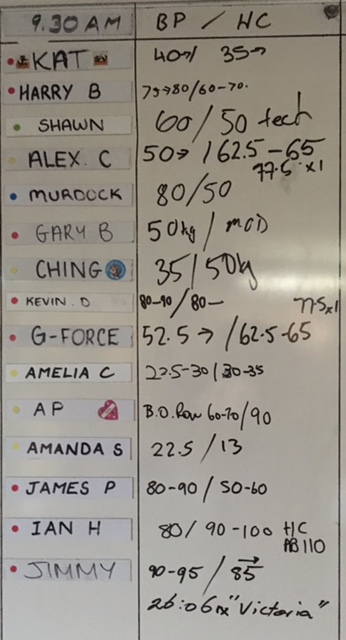 9.30 AM BP / HC
KAT 40→/ 35→
HARRY B 75→80/60-70.
SHAWN 60/50 tech
ALEX. C 50→ /62.5-65
77.5 x1
MURDOCK 80/50
GARY B 50kg / MOD
CHING 35/50kg
KEVIN. D 80-90/80- 77.5x1
G-FORCE 52.5→ /62.5-65
AMELIA C 27.5-30/30-35
AP B.O. Row 60-70/90
AMANDA S 22.5 /13
JAMES P 80-90 / 50-60
IAN H 80/ 90-100 HC
AB110
JIMMY 90-95 / 85→
26:06 "Victoria"